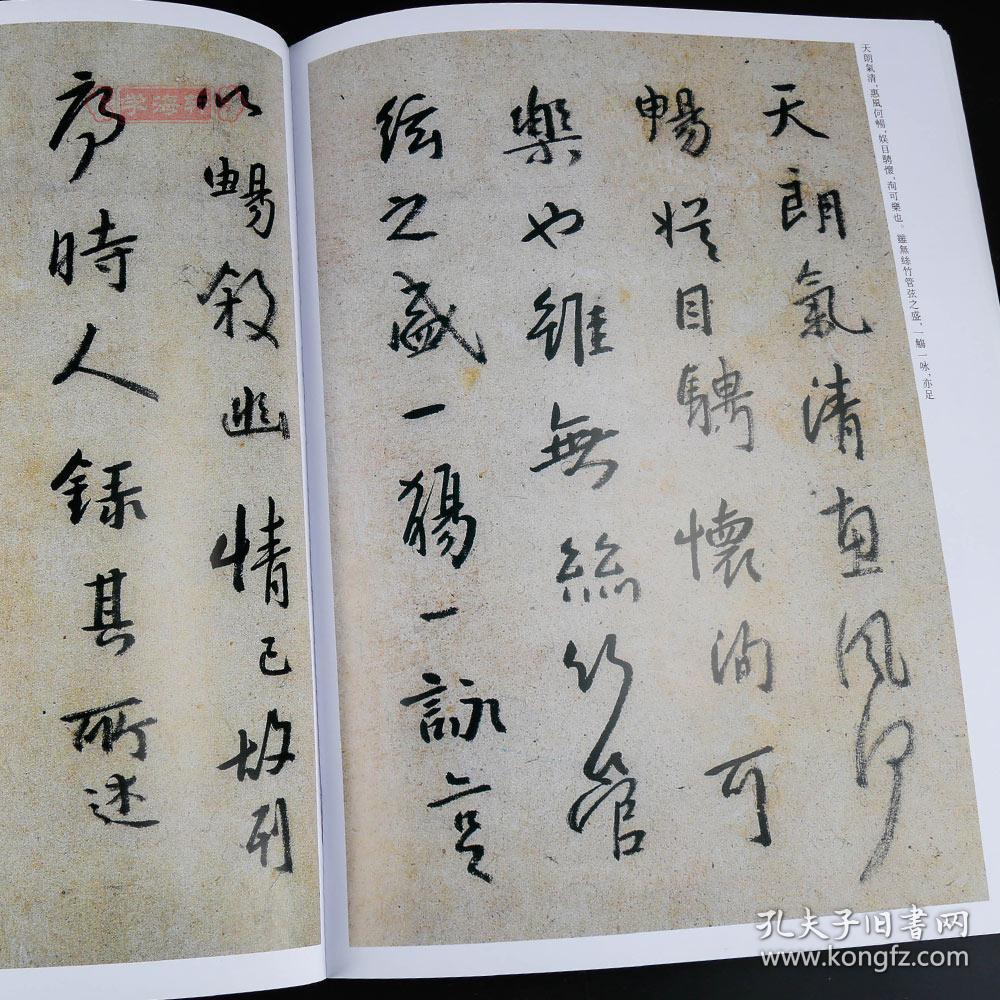 天朗氣清，惠風何暢，娱目騁懷，洵可樂也。雖無絲竹管弦之盛，一觴一咏，亦足
天朗氣清惠風何
暢娱目騁懷洵可
樂也雖無絲竹管
絃之盛一觴一詠亦足
以暢敘幽情已故列
序時人録其所述
学海轩
孔夫子旧书网
www.kongfz.com